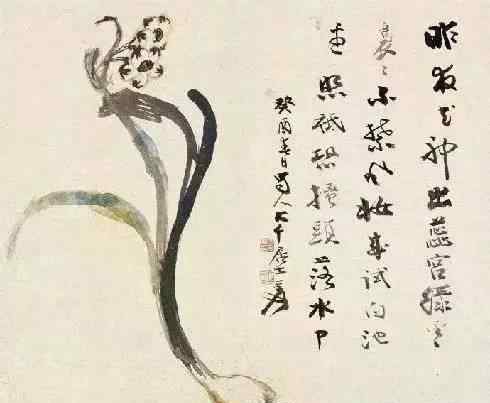 昨夜花神出蕊宮綠雲
裊〻不禁風妝成試向池
邊照祗恐搔頭落水中
癸酉春日蜀人大千居士爰